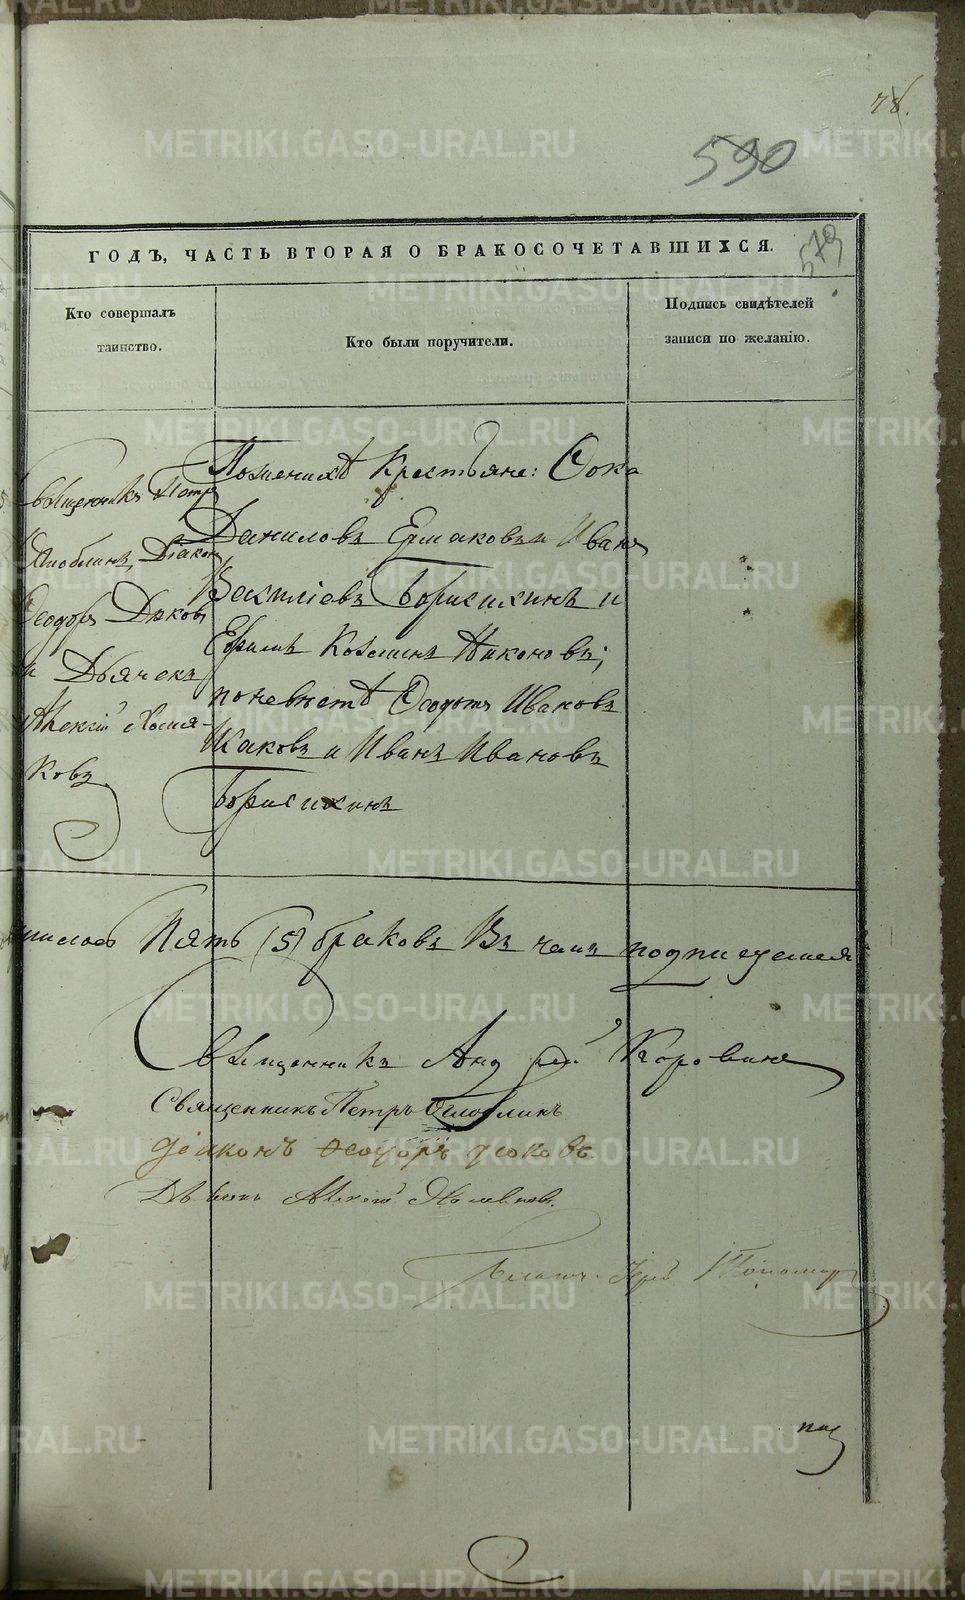 78.
590
579
ГОДЪ, ЧАСТЬ ВТОРАЯ О БРАКОСОЧЕТАВШИХСЯ.
Кто совершалъ
таинство.
Кто были поручители.
Подпись свидѣтелей
записи по желанію.
Священникъ Петръ
Оглоблинъ, Діаконъ
Ѳеодоръ Дьяковъ
и Дьячекъ
Алексій Холмя-
ковъ
Поженихѣ Крестьяне: Ѳока
Даниловъ Ермаковъ и Иванъ
Василіевъ Борисихинъ и
Ефимъ Козминъ Никоновъ;
поневѣстѣ Ѳедотъ Ивановъ
Исаковъ и Иванъ Ивановъ
Борисихинъ
Пять (5) браковъ Въ чемъ подписуемся
Священникъ Андрей Коровинъ
Священникъ Петръ Оглоблинъ
Діаконъ Ѳеодоръ Дьяковъ
Алексій Холмяковъ.
Пономарь
METRIKI.GASO-URAL.RU